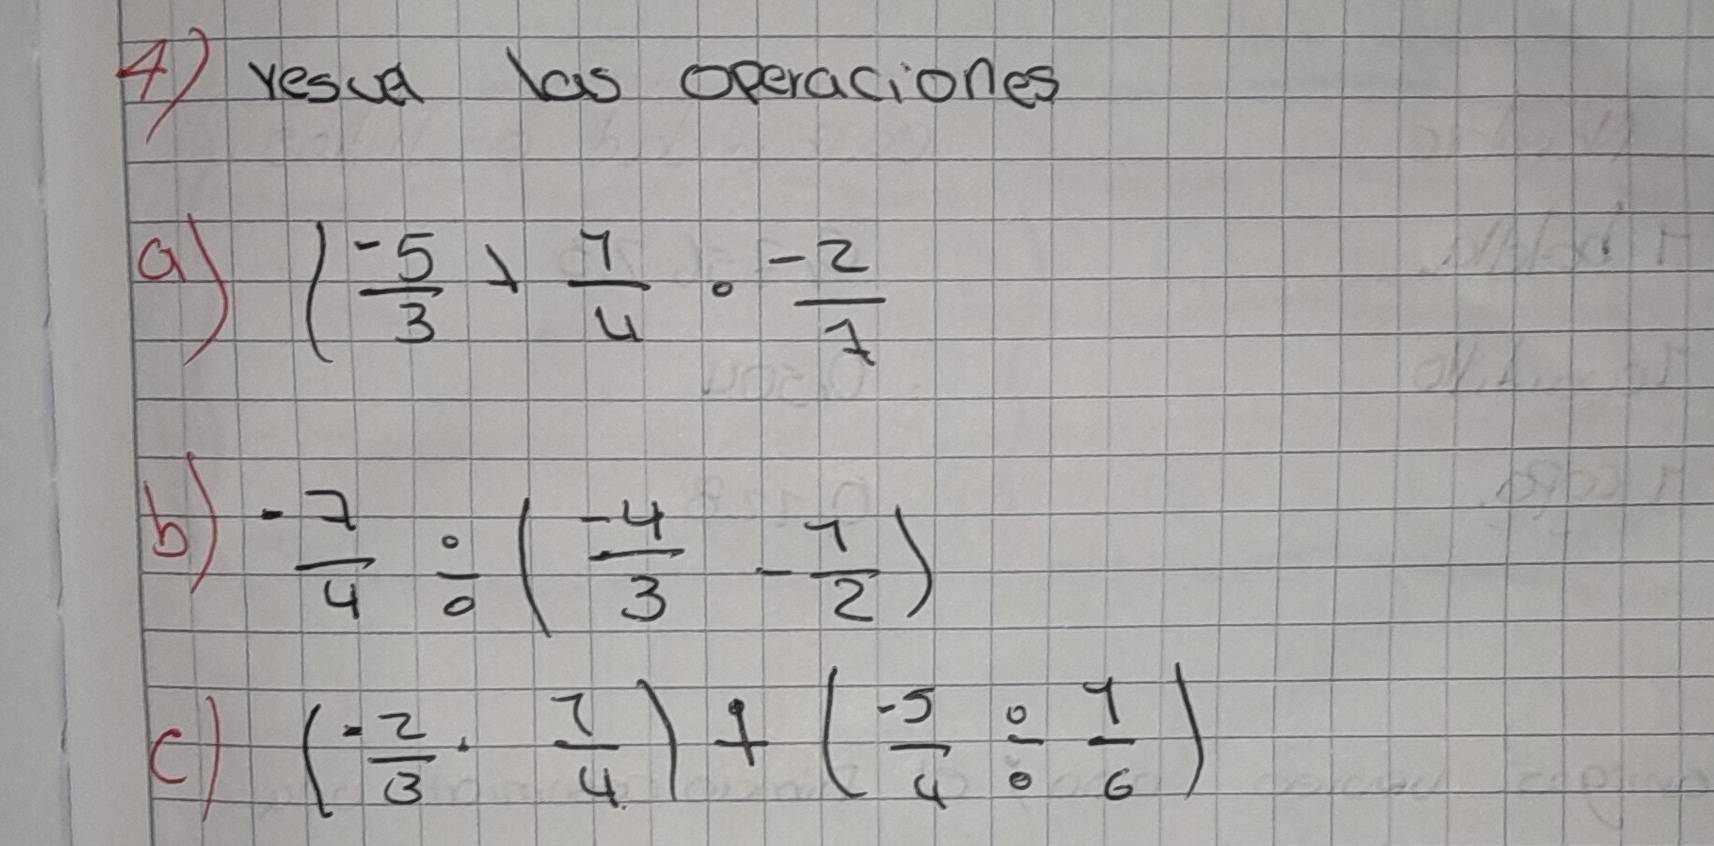 4) resuel las operaciones
a) (-5/3 + 1/4 · -2/7
b) -7/4 ÷ (-4/3 - 1/2)
c) (-2/3 · 7/4) + (-5/4 ÷ 1/6)